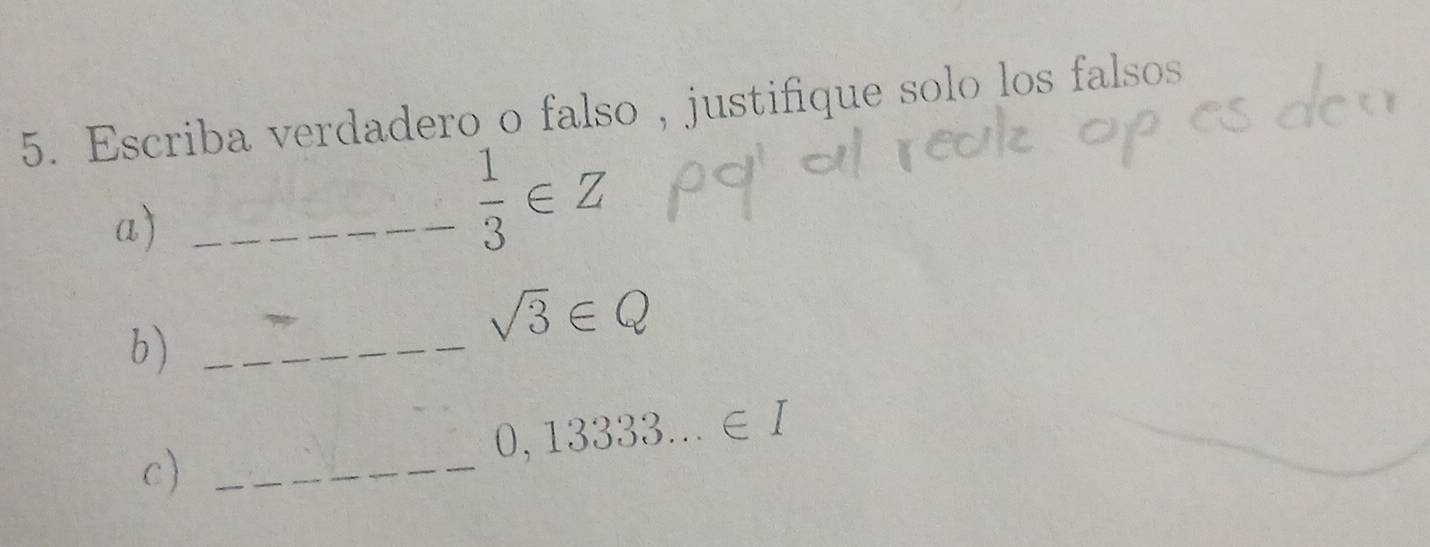 5. Escriba verdadero o falso , justifique solo los falsos
pq' al realz op es decir
a) _ _ _ _ _ _ _ 1/3 ∈ Z
b) _ _ _ _ _ _ _ √3 ∈ Q
c) _ _ _ _ _ _ _ 0, 13333... ∈ I